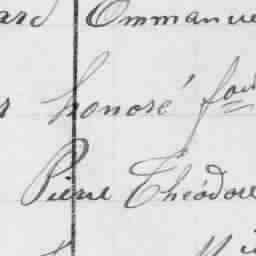 ard Ommanue
r honoré fou
Pierre Théodore